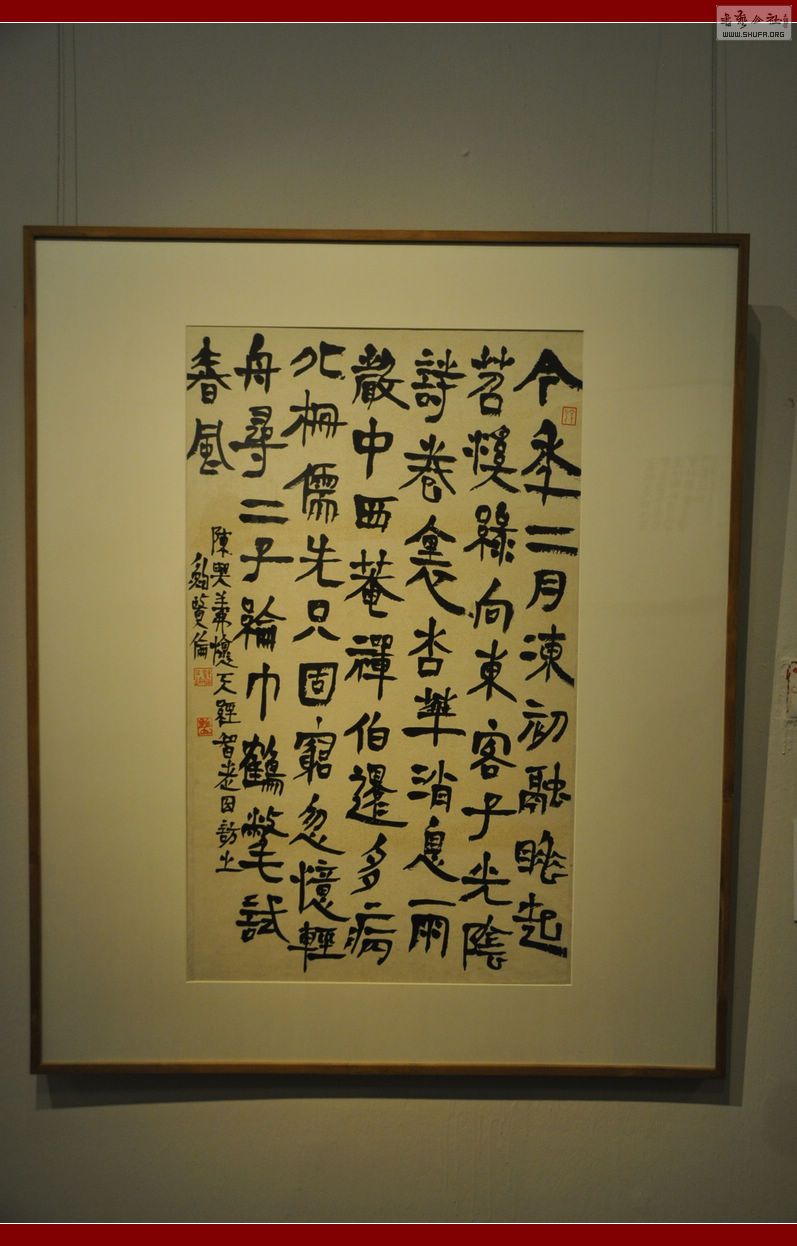 今秊二月凍初融睡起
苕溪綠向東客子光陰
詩卷裏杏華消息雨
聲中西菴禪伯還多病
北柵儒先只固窮忽憶輕
舟尋二子綸巾鶴氅試
春風
陳與義懷天經智老因訪之
鮑賢倫
WWW.SHUFA.ORG